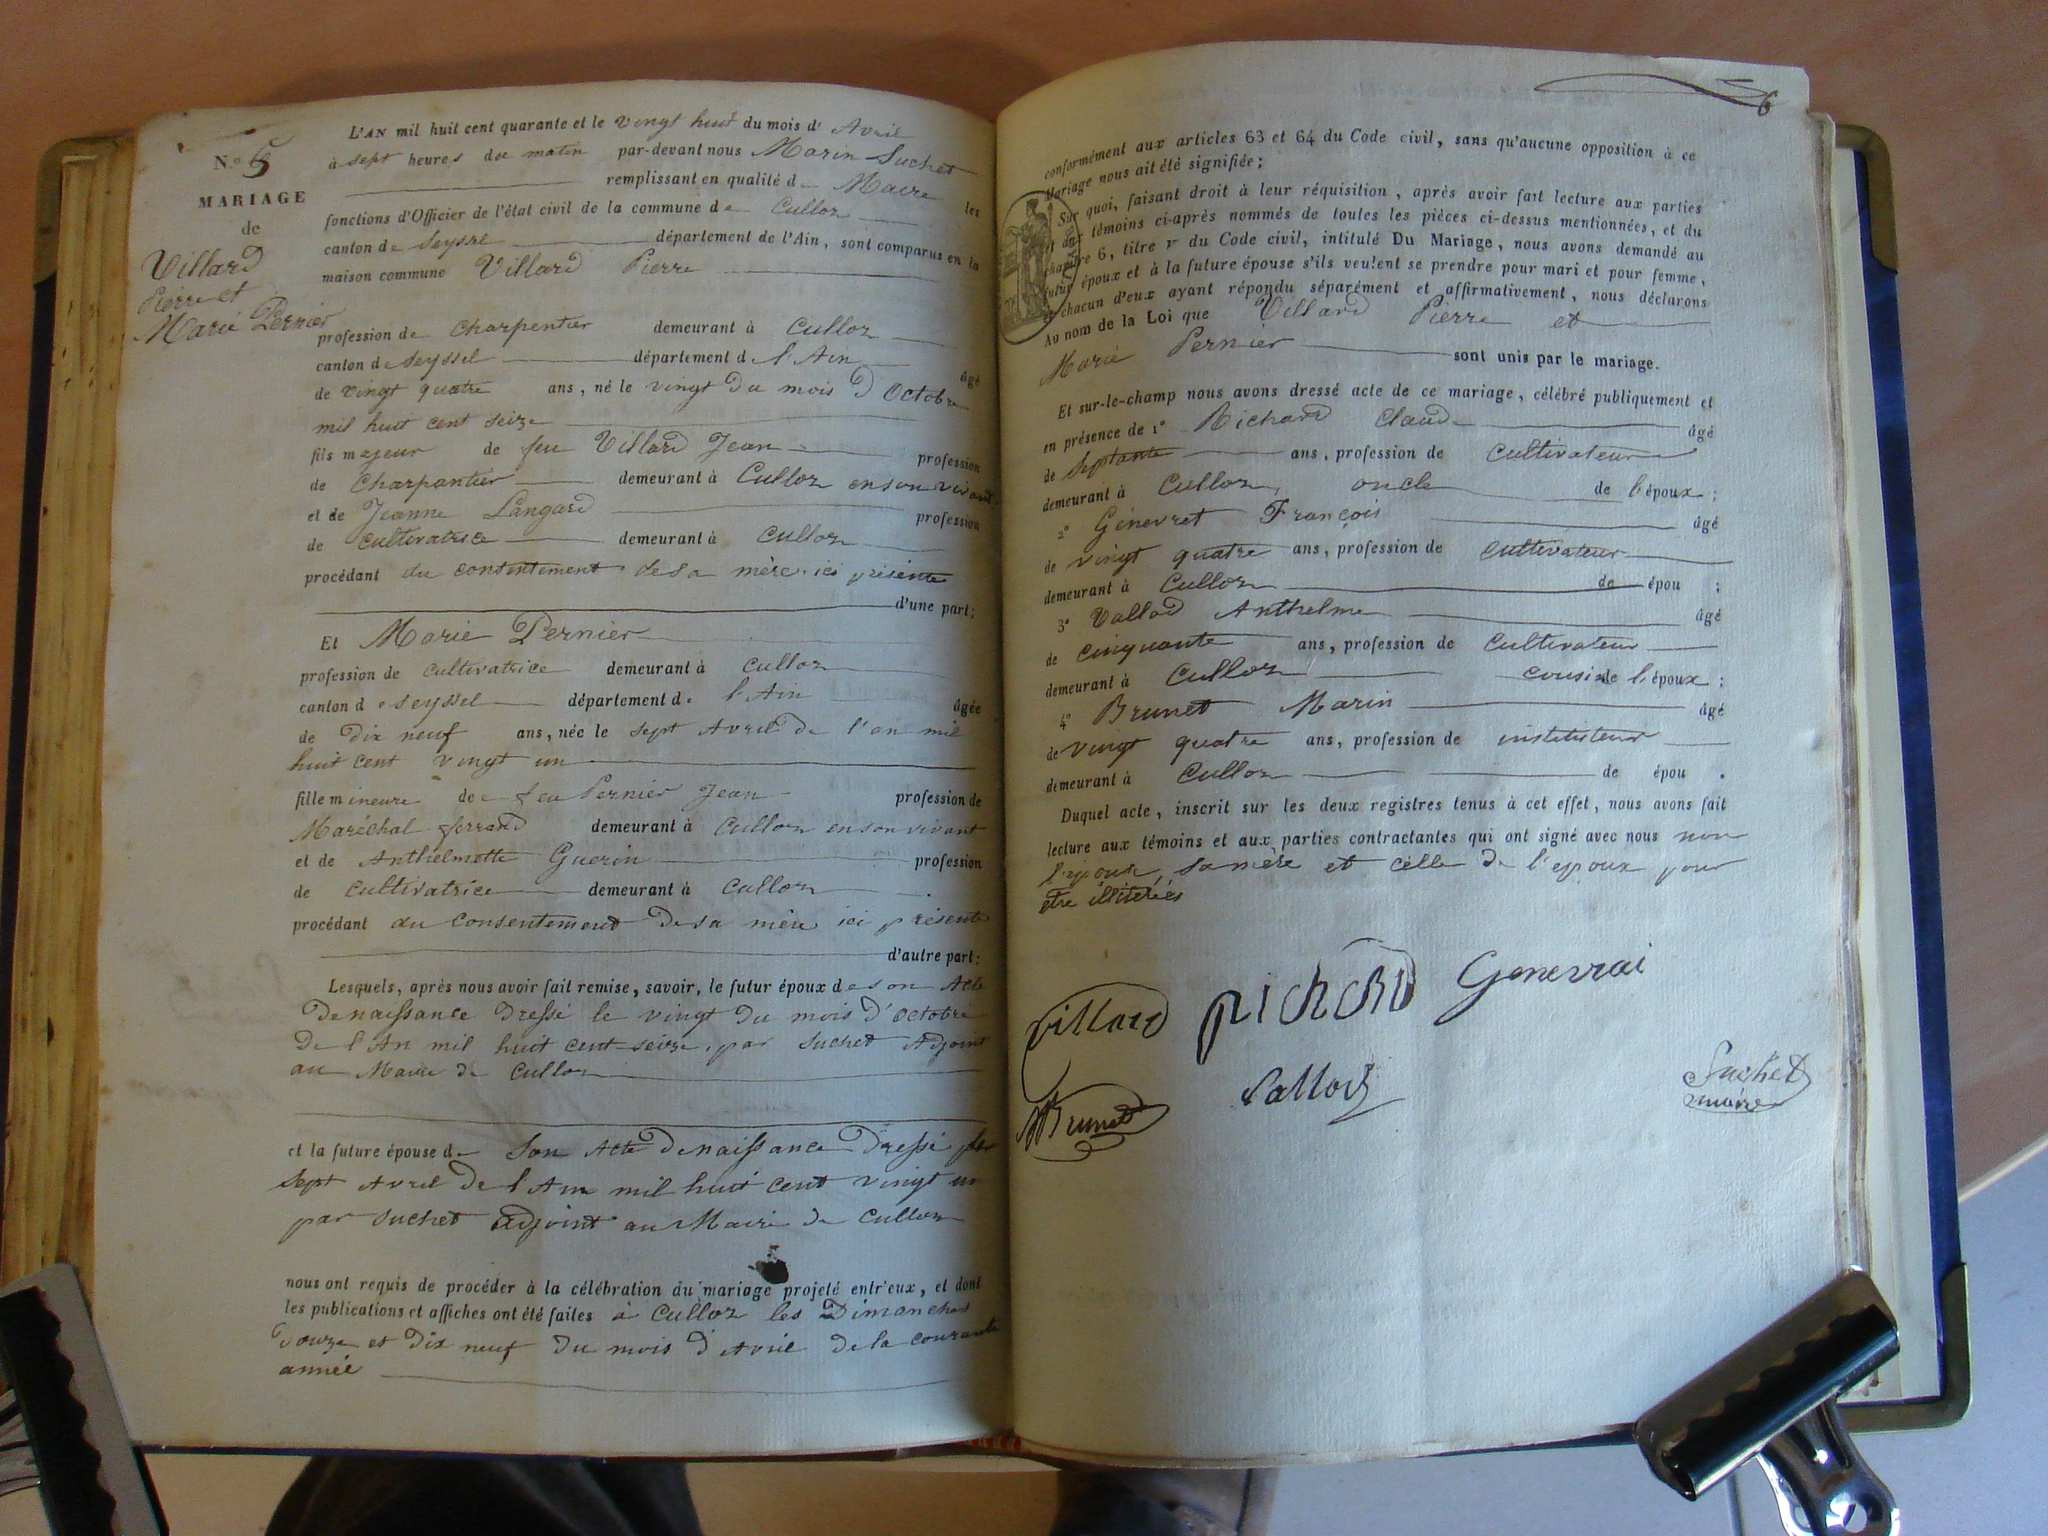 L'AN mil huit cent quarante et le vingt huit du mois d' Avril
N.o 5
à sept heures du matin par-devant nous Marin Suchet
remplissant en qualité de Maire les
MARIAGE
fonctions d'Officier de l'état civil de la commune de Culloz
de
canton de Seyssel département de l'Ain, sont comparus en la
Villard
maison commune Villard Pierre
Pierre et
Marie Pernier
profession de Charpentier demeurant à Culloz
canton de Seyssel département de l'Ain âgé
de vingt quatre ans, né le vingt du mois d'Octobre
mil huit cent seize
fils majeur de feu Villard Jean profession
de Charpantier demeurant à Culloz en son vivant
et de Jeanne Langard profession
de cultivatrice demeurant à Culloz
procédant du consentement de sa mère ici présente
d'une part;
Et Marie Pernier
profession de cultivatrice demeurant à Culloz
canton de Seyssel département de l'Ain âgée
de dix neuf ans, née le sept Avril de l'an mil
huit cent vingt un
fille mineure de feu Pernier Jean profession de
Maréchal ferrand demeurant à Culloz en son vivant
et de Anthelmette Guerin profession
de cultivatrice demeurant à Culloz
procédant du consentement de sa mère ici présente
d'autre part:
Lesquels, après nous avoir fait remise, savoir, le futur époux de son Acte
de naissance dressé le vingt du mois d'Octobre
de l'An mil huit cent seize, par Suchet Adjoint
au Maire de Culloz
et la future épouse de son Acte de naissance dressé le
sept Avril de l'An mil huit cent vingt un
par Suchet adjoint au Maire de Culloz
nous ont requis de procéder à la célébration du mariage projeté entr'eux, et dont
les publications et affiches ont été faites à Culloz les Dimanches
douze et dix neuf du mois d'Avril de la courante
année
6
conformément aux articles 63 et 64 du Code civil, sans qu'aucune opposition à ce
Mariage nous ait été signifiée;
Sur quoi, faisant droit à leur réquisition, après avoir fait lecture aux parties
et aux témoins ci-après nommés de toutes les pièces ci-dessus mentionnées, et du
chapitre 6, titre v du Code civil, intitulé Du Mariage, nous avons demandé au
futur époux et à la future épouse s'ils veulent se prendre pour mari et pour femme,
et chacun d'eux ayant répondu séparément et affirmativement, nous déclarons
Au nom de la Loi que Villard Pierre et
Marie Pernier sont unis par le mariage.
Et sur-le-champ nous avons dressé acte de ce mariage, célébré publiquement et
en présence de 1° Richard Claude âgé
de septante ans, profession de Cultivateur
demeurant à Culloz, oncle de l'époux;
2° Genevret François âgé
de vingt quatre ans, profession de cultivateur
demeurant à Culloz de épou ;
3° Vallod Anthelme âgé
de cinquante ans, profession de Cultivateur
demeurant à Culloz cousin de l'époux;
4° Brunet Marin âgé
de vingt quatre ans, profession de instituteur
demeurant à Culloz de épou .
Duquel acte, inscrit sur les deux registres tenus à cet effet, nous avons fait
lecture aux témoins et aux parties contractantes qui ont signé avec nous non
l'epouse, sa mère et celle de l'epoux pour
etre illiterées
Villard Richard Genevrai
Vallod Suchet
maire
M Brunet